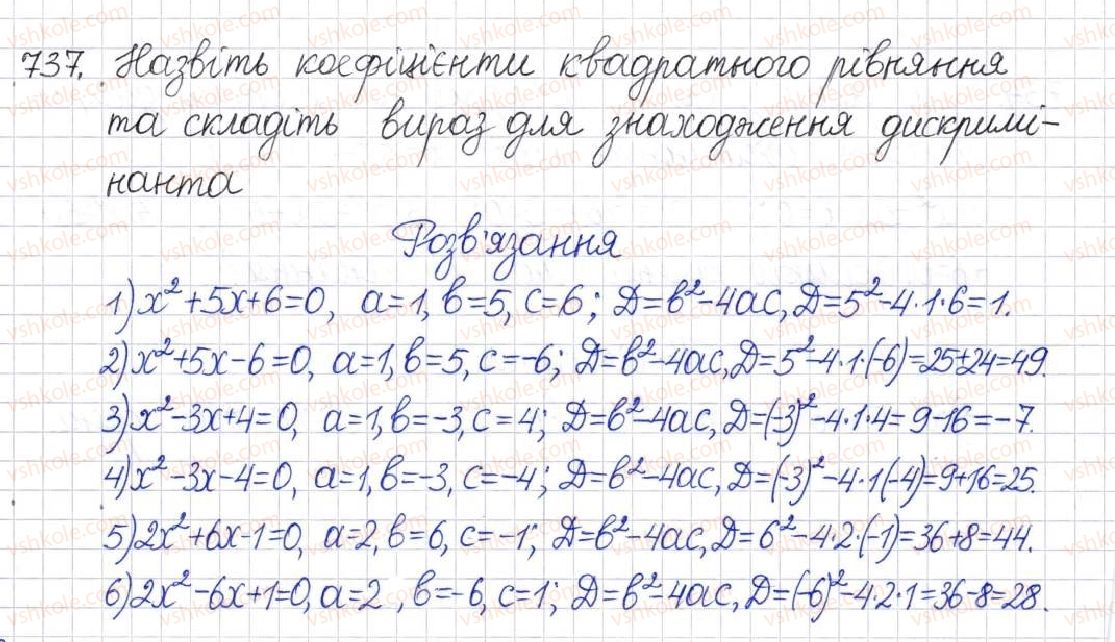 737. Назвіть коефіцієнти квадратного рівняння
та складіть вираз для знаходження дискримі-
нанта
Розв'язання
1) x²+5x+6=0, a=1, b=5, c=6; D=b²-4ac, D=5²-4·1·6=1.
2) x²+5x-6=0, a=1, b=5, c=-6; D=b²-4ac, D=5²-4·1·(-6)=25+24=49.
3) x²-3x+4=0, a=1, b=-3, c=4; D=b²-4ac, D=(-3)²-4·1·4=9-16=-7.
4) x²-3x-4=0, a=1, b=-3, c=-4; D=b²-4ac, D=(-3)²-4·1(-4)=9+16=25.
5) 2x²+6x-1=0, a=2, b=6, c=-1; D=b²-4ac, D=6²-4·2·(-1)=36+8=44.
6) 2x²-6x+1=0, a=2, b=-6, c=1; D=b²-4ac, D=(-6)²-4·2·1=36-8=28.